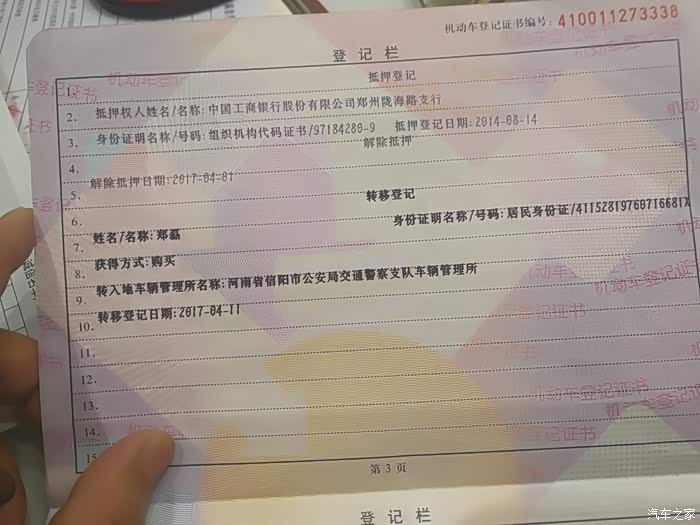 机动车登记证书编号: 410011273338
登记栏
1. 抵押登记
2. 抵押权人姓名/名称:中国工商银行股份有限公司郑州陇海路支行
3. 身份证明名称/号码:组织机构代码证书/97184280-9 抵押登记日期:2014-08-14
4. 解除抵押
5. 解除抵押日期:2017-04-01
6. 转移登记
7. 姓名/名称:郑磊 身份证明名称/号码:居民身份证/41152819760716681X
8. 获得方式:购买
9. 转入地车辆管理所名称:河南省信阳市公安局交通警察支队车辆管理所
10. 转移登记日期:2017-04-11
11.
12.
13.
14.
15
第3页
登记栏
机动车登记证书
汽车之家